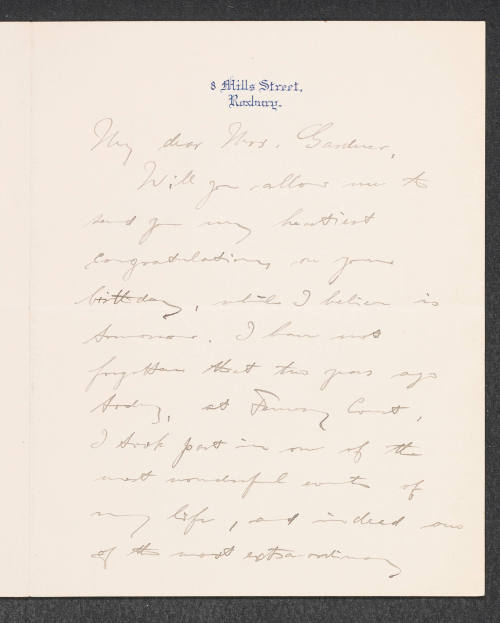 8 Mills Street,
Roxbury.
My dear Mrs. Gardner,
Will you allow me to
send you my heartiest
congratulations, on your
birthday, which I believe is
tomorrow. I have not
forgotten that two years ago
today, at Fenway Court,
I took part in one of the
most wonderful events of
my life, and indeed one
of the most extraordinary